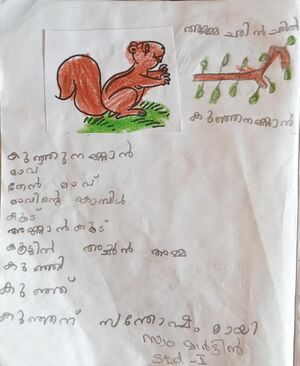 അമ്മ ഛിൻ ഛിൽ
കുഞ്ഞനണ്ണാൻ
കുഞ്ഞുനണ്ണാൻ
മാവ്
തേൻ മാവ്
മാവിന്റെ കൊമ്പിൽ
കൂട്
അണ്ണാൻ കൂട്
കൂട്ടിൽ അച്ഛൻ അമ്മ
കുഞ്ഞി
കുഞ്ഞ്
കുഞ്ഞന് സന്തോഷം മായി
സാം മാർട്ടിൻ
Std - I